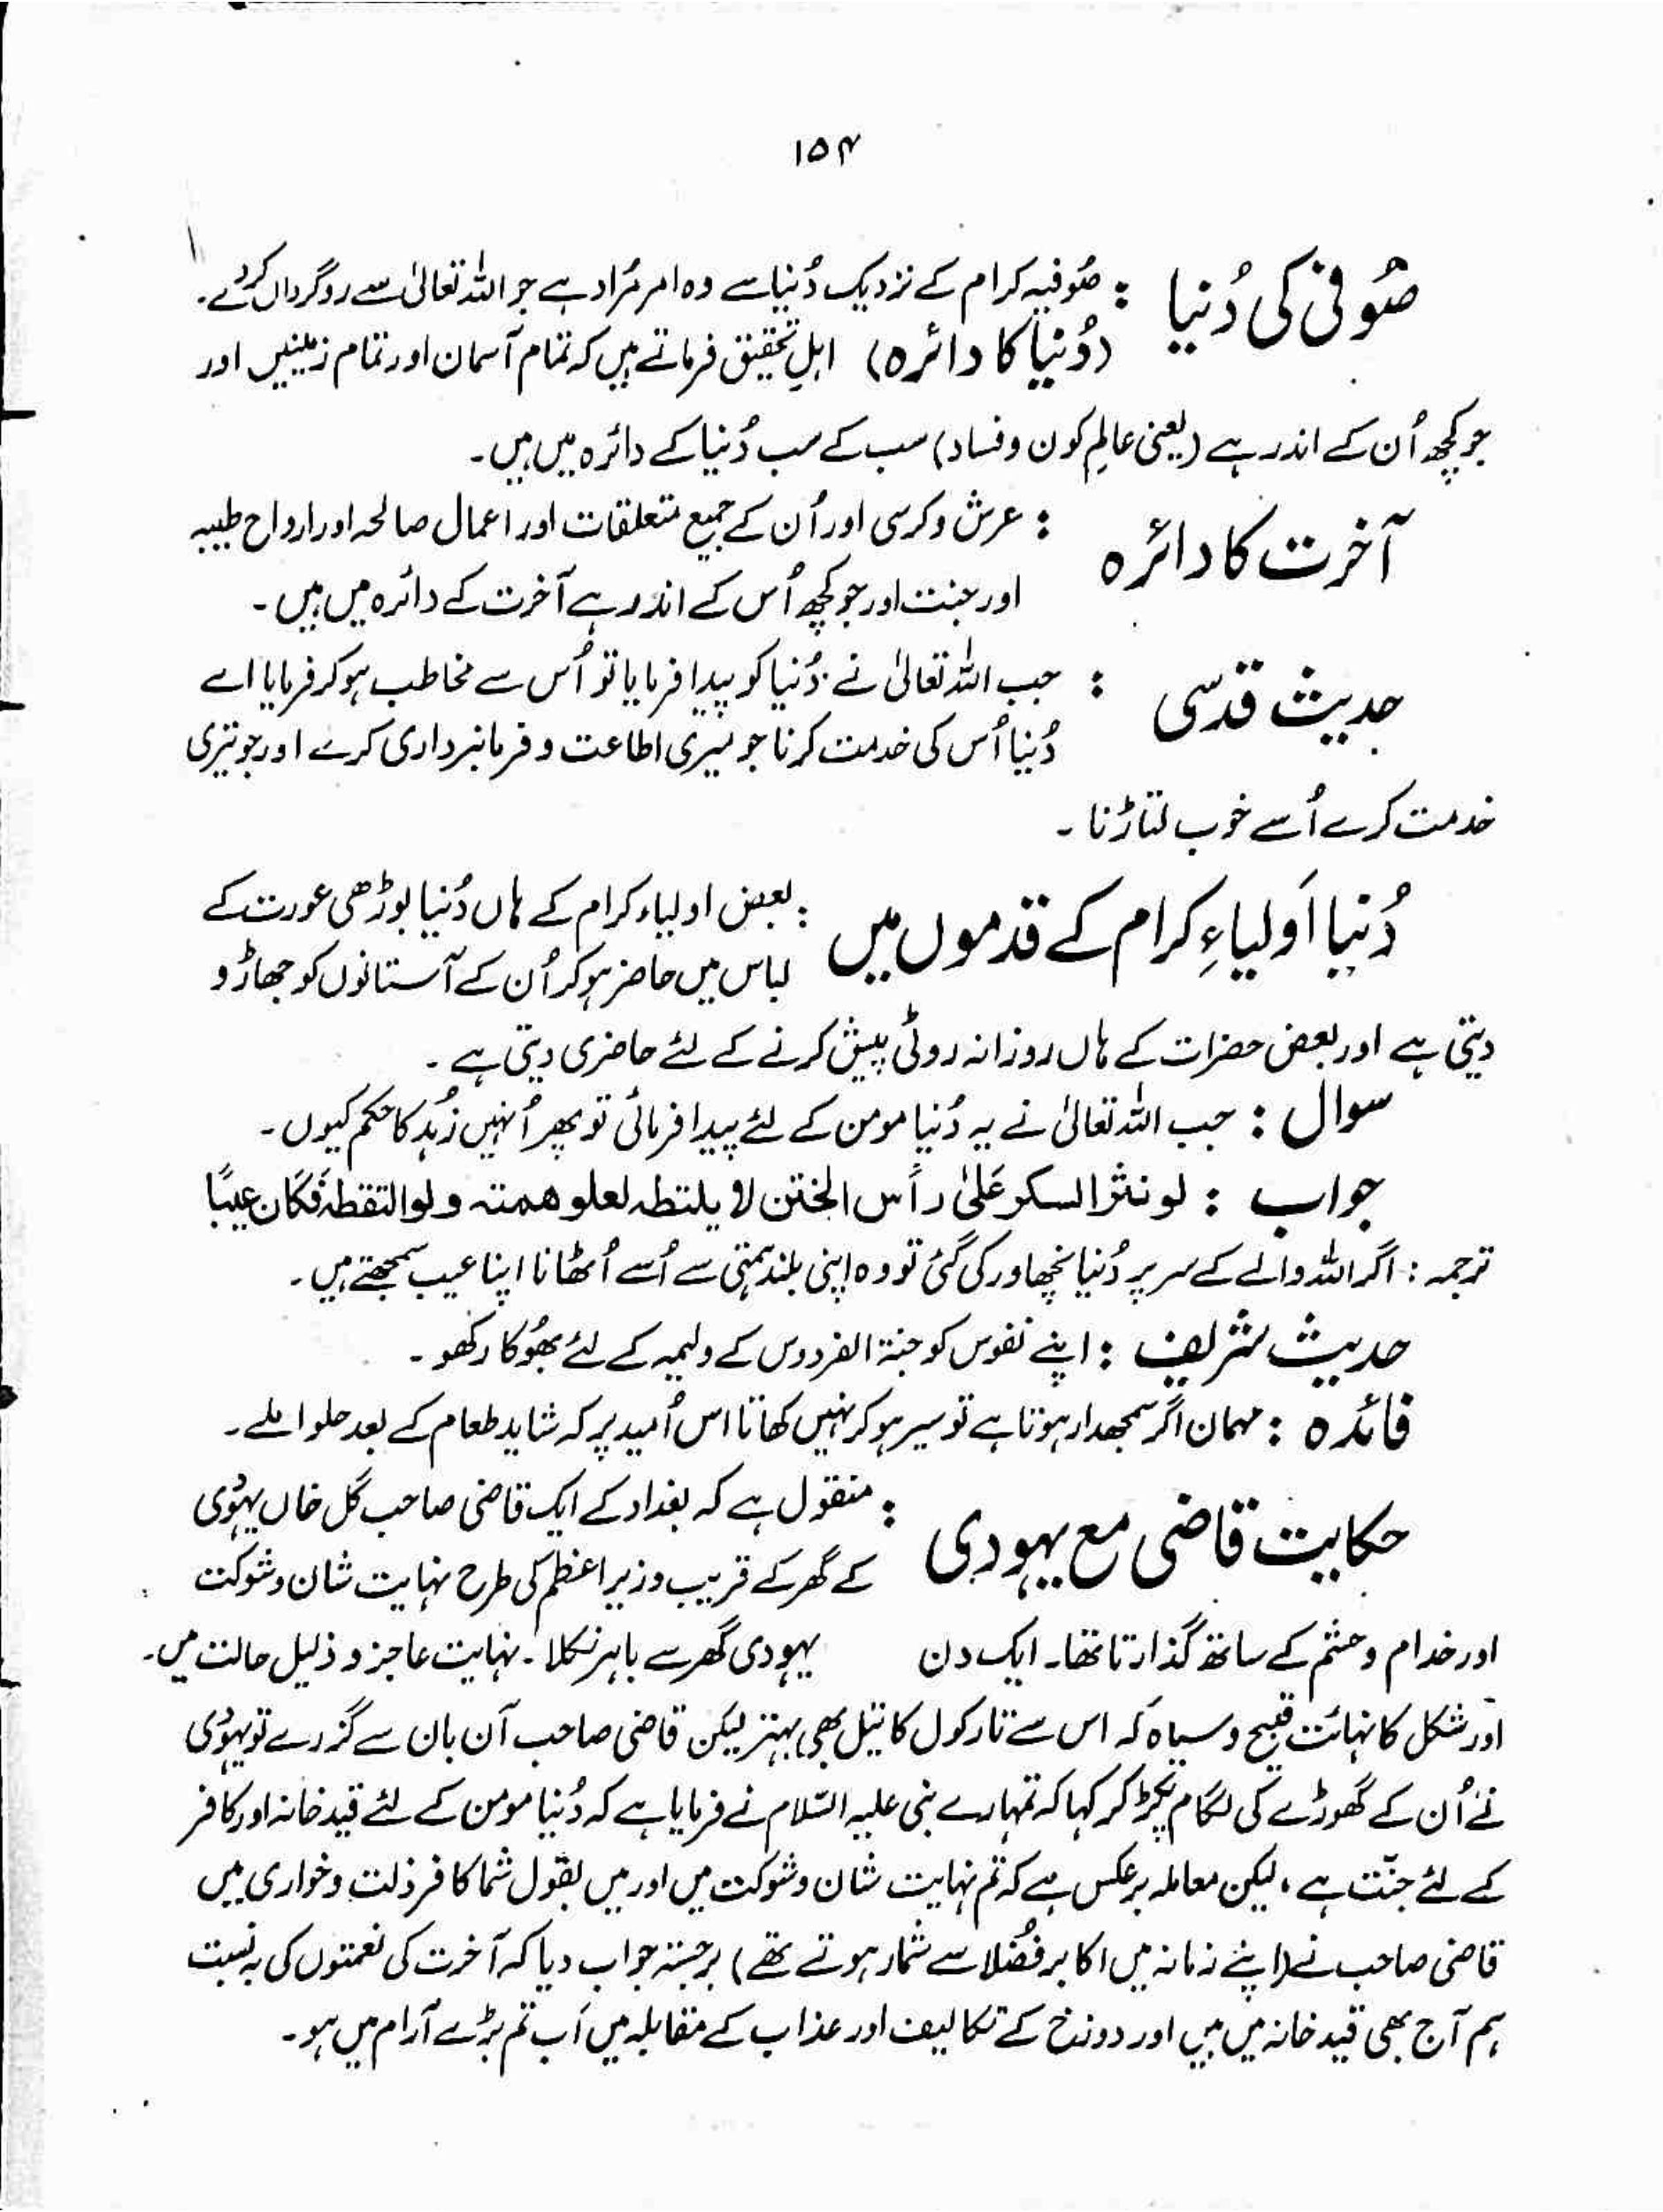 ۱۵۴
صُوفی کی دُنیا : صُوفیہ کرام کے نزدیک دُنیا سے وہ امر مُراد ہے جو اللہ تعالیٰ سے روگرداں کردے۔
(دُنیا کا دائرہ) اہلِ تحقیق فرماتے ہیں کہ تمام آسمان اور تمام زمینیں اور
جو کچھ اُن کے اندر ہے (یعنی عالمِ کون و فساد) سب کے سب دُنیا کے دائرہ میں ہیں۔
آخرت کا دائرہ : عرش و کرسی اور اُن کے جمیع متعلقات اور اعمال صالحہ اور ارواح طیبہ
اور جنت اور جو کچھ اُس کے اندر ہے آخرت کے دائرہ میں ہیں۔
حدیث قدسی : جب اللہ تعالیٰ نے دُنیا کو پیدا فرمایا تو اُس سے مخاطب ہو کر فرمایا اے
دُنیا اُس کی خدمت کرنا جو میری اطاعت و فرمانبرداری کرے اور جو تیری
خدمت کرے اُسے خوب لتاڑنا۔
دُنیا اَولیاءِ کرام کے قدموں میں : بعض اولیاء کرام کے ہاں دُنیا بوڑھی عورت کے
لباس میں حاضر ہو کر اُن کے آستانوں کو جھاڑو
دیتی ہے اور بعض حضرات کے ہاں روزانہ روٹی پیش کرنے کے لئے حاضری دیتی ہے۔
سوال : جب اللہ تعالیٰ نے یہ دُنیا مومن کے لئے پیدا فرمائی تو پھر اُنہیں زُہد کا حکم کیوں۔
جواب : لو نثر السکر عَلیٰ رأس الختن لا یلتطہ لعلو ھمتہ و لو التقطہٗ فَکَان عیبًا
ترجمہ : اگر اللہ والے کے سر پر دُنیا نچھاور کی گئی تو وہ اپنی بلند ہمتی سے اُسے اُٹھانا اپنا عیب سمجھتے ہیں۔
حدیث شریف : اپنے نفوس کو جنۃ الفردوس کے ولیمہ کے لئے بھُوکا رکھو۔
فائدہ : مہمان اگر سمجھدار ہوتا ہے تو سیر ہو کر نہیں کھاتا اس اُمید پر کہ شاید طعام کے بعد حلوا ملے۔
حکایت قاضی مع یہودی : منقول ہے کہ بغداد کے ایک قاضی صاحب گل خاں یہُودی
کے گھر کے قریب وزیر اعظم کی طرح نہایت شان و شوکت
اور خدام و حشم کے ساتھ گذارتا تھا۔ ایک دن یہودی گھر سے باہر نکلا۔ نہایت عاجز و ذلیل حالت میں۔
اور شکل کا نہائت قبیح و سیاہ کہ اس سے تارکول کا تیل بھی بہتر لیکن قاضی صاحب آن بان سے گزرے تو یہوُدی
نے اُن کے گھوڑے کی لگام پکڑ کر کہا کہ تمہارے نبی علیہ السّلام نے فرمایا ہے کہ دُنیا مومن کے لئے قید خانہ اور کافر
کے لئے جنّت ہے، لیکن معاملہ برعکس ہے کہ تم نہایت شان و شوکت میں اور میں بقول شما کافر ذلت و خواری میں
قاضی صاحب نے (اپنے زمانہ میں اکابر فضُلا سے شمار ہوتے تھے) برجستہ جواب دیا کہ آخرت کی نعمتوں کی بہ نسبت
ہم آج بھی قید خانہ میں ہیں اور دوزخ کے تکالیف اور عذاب کے مقابلہ میں اَب تم بڑے آرام میں ہو۔